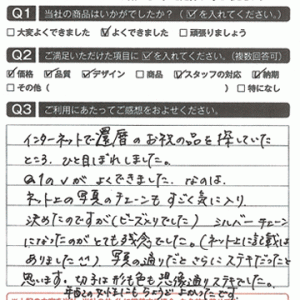 Q1 当社の商品はいかがでしたか？（☑を入れてください。）
□大変よくできました ☑よくできました □頑張りましょう
Q2 ご満足いただけた項目に☑を入れてください。（複数回答可）
☑価格 ☑品質 ☑デザイン □商品 ☑スタッフの対応 ☑納期
□その他（ ）□特になし
Q3 ご利用にあたってご感想をおよせください。
インターネットで還暦のお祝の品を探していた
ところ、ひと目ぼれしました。
Q1のVが よくできました。なのは、
ネット上の写真のチェーンも すごく気に入り
決めたのですが(ビーズ入りでした) シルバーチェーン
になったのが とても残念でした。(ネット上に記載は
ありました^^) 写真の通りだと さらにステキだったと
思います。切子は形も色も想像通りステキでした。